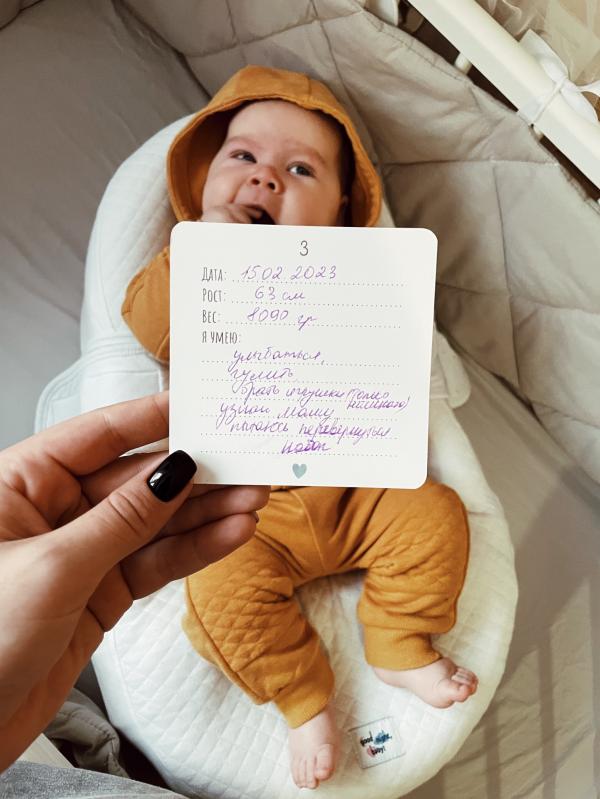 3
Дата: 15.02.2023
Рост: 63 см
Вес: 8090 гр
Я умею:
улыбаться,
гулить,
брать игрушки (только
узнаю маму,
пытаюсь перевернуться
good night,
baby!